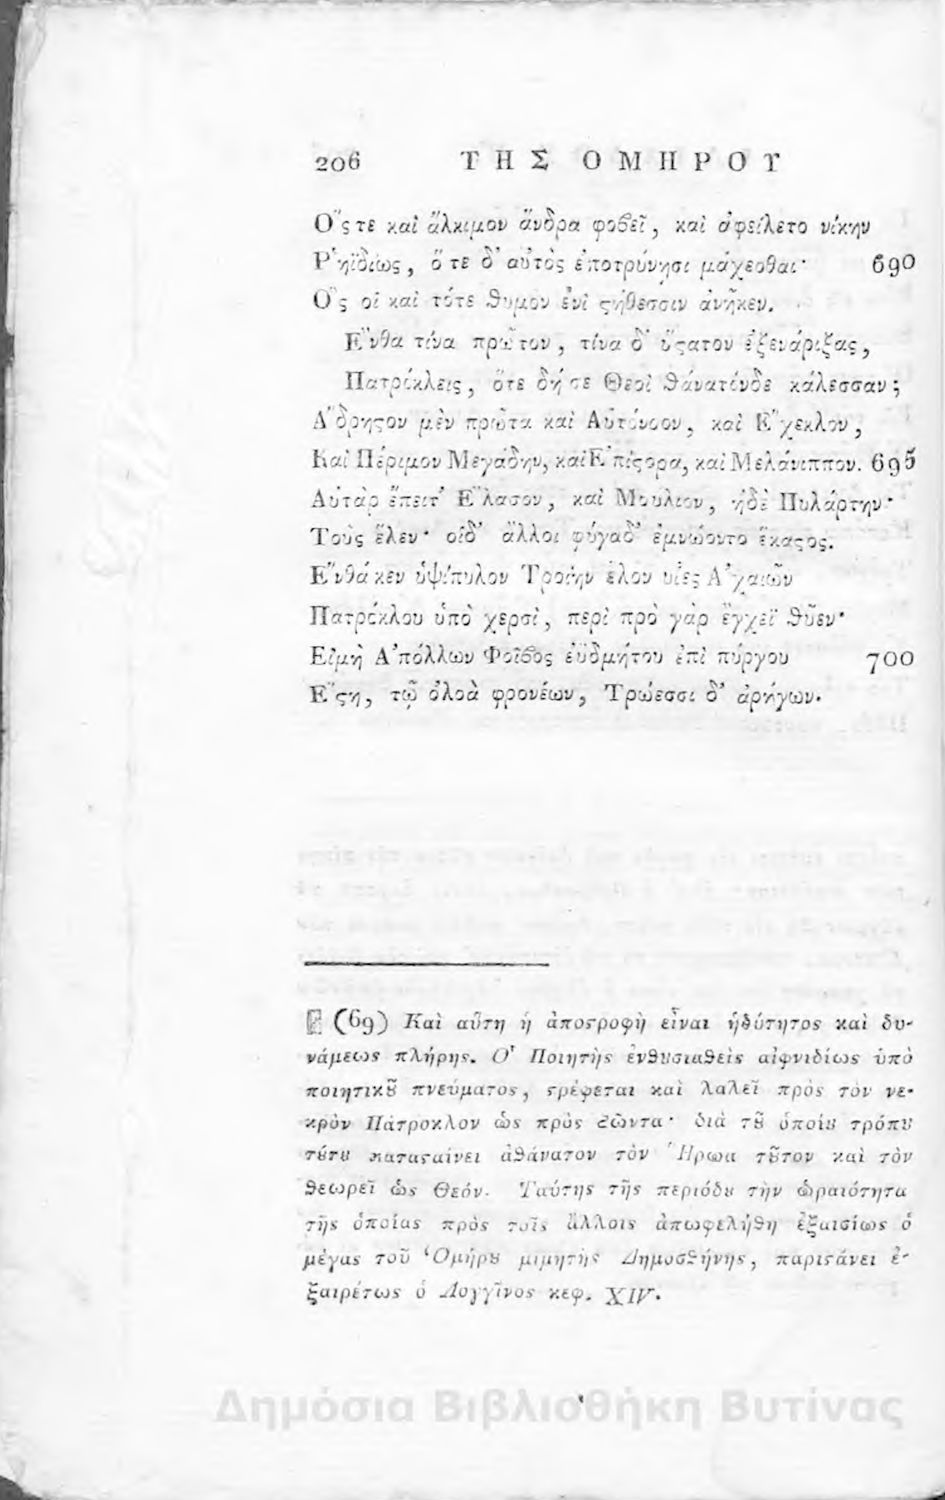 206 ΤΗΣ ΟΜΗΡΟΥ
Ὅςτε καὶ ἄλκιμον ἄνδρα φοβεῖ, καὶ ἀφείλετο νίκην
Ῥηϊδίως, ὅτε δ' αὐτὸς ἐποτρύνησι μάχεσθαι· 690
Ὅς οἱ καὶ τότε θυμὸν ἐνὶ ςήθεσσιν ἀνῆκεν.
Ἔνθα τίνα πρῶτον, τίνα δ' ὕςατον ἐξενάριξας,
Πατρόκλεις, ὅτε δή σε Θεοὶ θάνατόνδε κάλεσσαν;
Ἄδρηςον μὲν πρῶτα καὶ Αὐτόνοον, καὶ Ἔχεκλον,
Καὶ Πέριμον Μεγάδην, καὶ Ἐπίςορα, καὶ Μελάνιππον. 695
Αὐτὰρ ἔπειτ' Ἔλασον, καὶ Μούλιον, ἠδὲ Πυλάρτην·
Τοὺς ἕλεν· οἱδ' ἄλλοι φύγαδ' ἐμνώοντο ἕκαςος.
Ἔνθά κεν ὑψίπυλον Τροίην ἕλον υἷες Ἀχαιῶν
Πατρόκλου ὑπὸ χερσὶ, περὶ πρὸ γὰρ ἔγχεϊ θῦεν·
Εἰμὴ Ἀπόλλων Φοῖβος ἐϋδμήτου ἐπὶ πύργου 700
Ἔςη, τῷ ὀλοὰ φρονέων, Τρώεσσι δ' ἀρήγων.
(69) Καὶ αὕτη ἡ ἀποςροφὴ εἶναι ἡδύτητος καὶ δυ-
νάμεως πλήρης. Ὁ Ποιητὴς ἐνθȣσιαθεὶς αἰφνιδίως ὑπὸ
ποιητικȣ͂ πνεύματος, ςρέφεται καὶ λαλεῖ πρὸς τὸν νε-
κρὸν Πάτροκλον ὡς πρὸς ζῶντα· διὰ τȣ͂ ὁποίȣ τρόπȣ
τύτȣ καταςαίνει ἀθάνατον τὸν Ἥρωα τȣ͂τον καὶ τὸν
θεωρεῖ ὡς Θεόν. Ταύτης τῆς περιόδȣ τὴν ὡραιότητα
τῆς ὁποίας πρὸς τοῖς ἄλλοις ἀπωφελήθη ἐξαισίως ὁ
μέγας τοῦ Ὁμήρȣ μιμητὴς Δημοσθήνης, παριςάνει ἐ-
ξαιρέτως ὁ Λογγῖνος κεφ. XIV.
Δημόσια Βιβλιοθήκη Βυτίνας